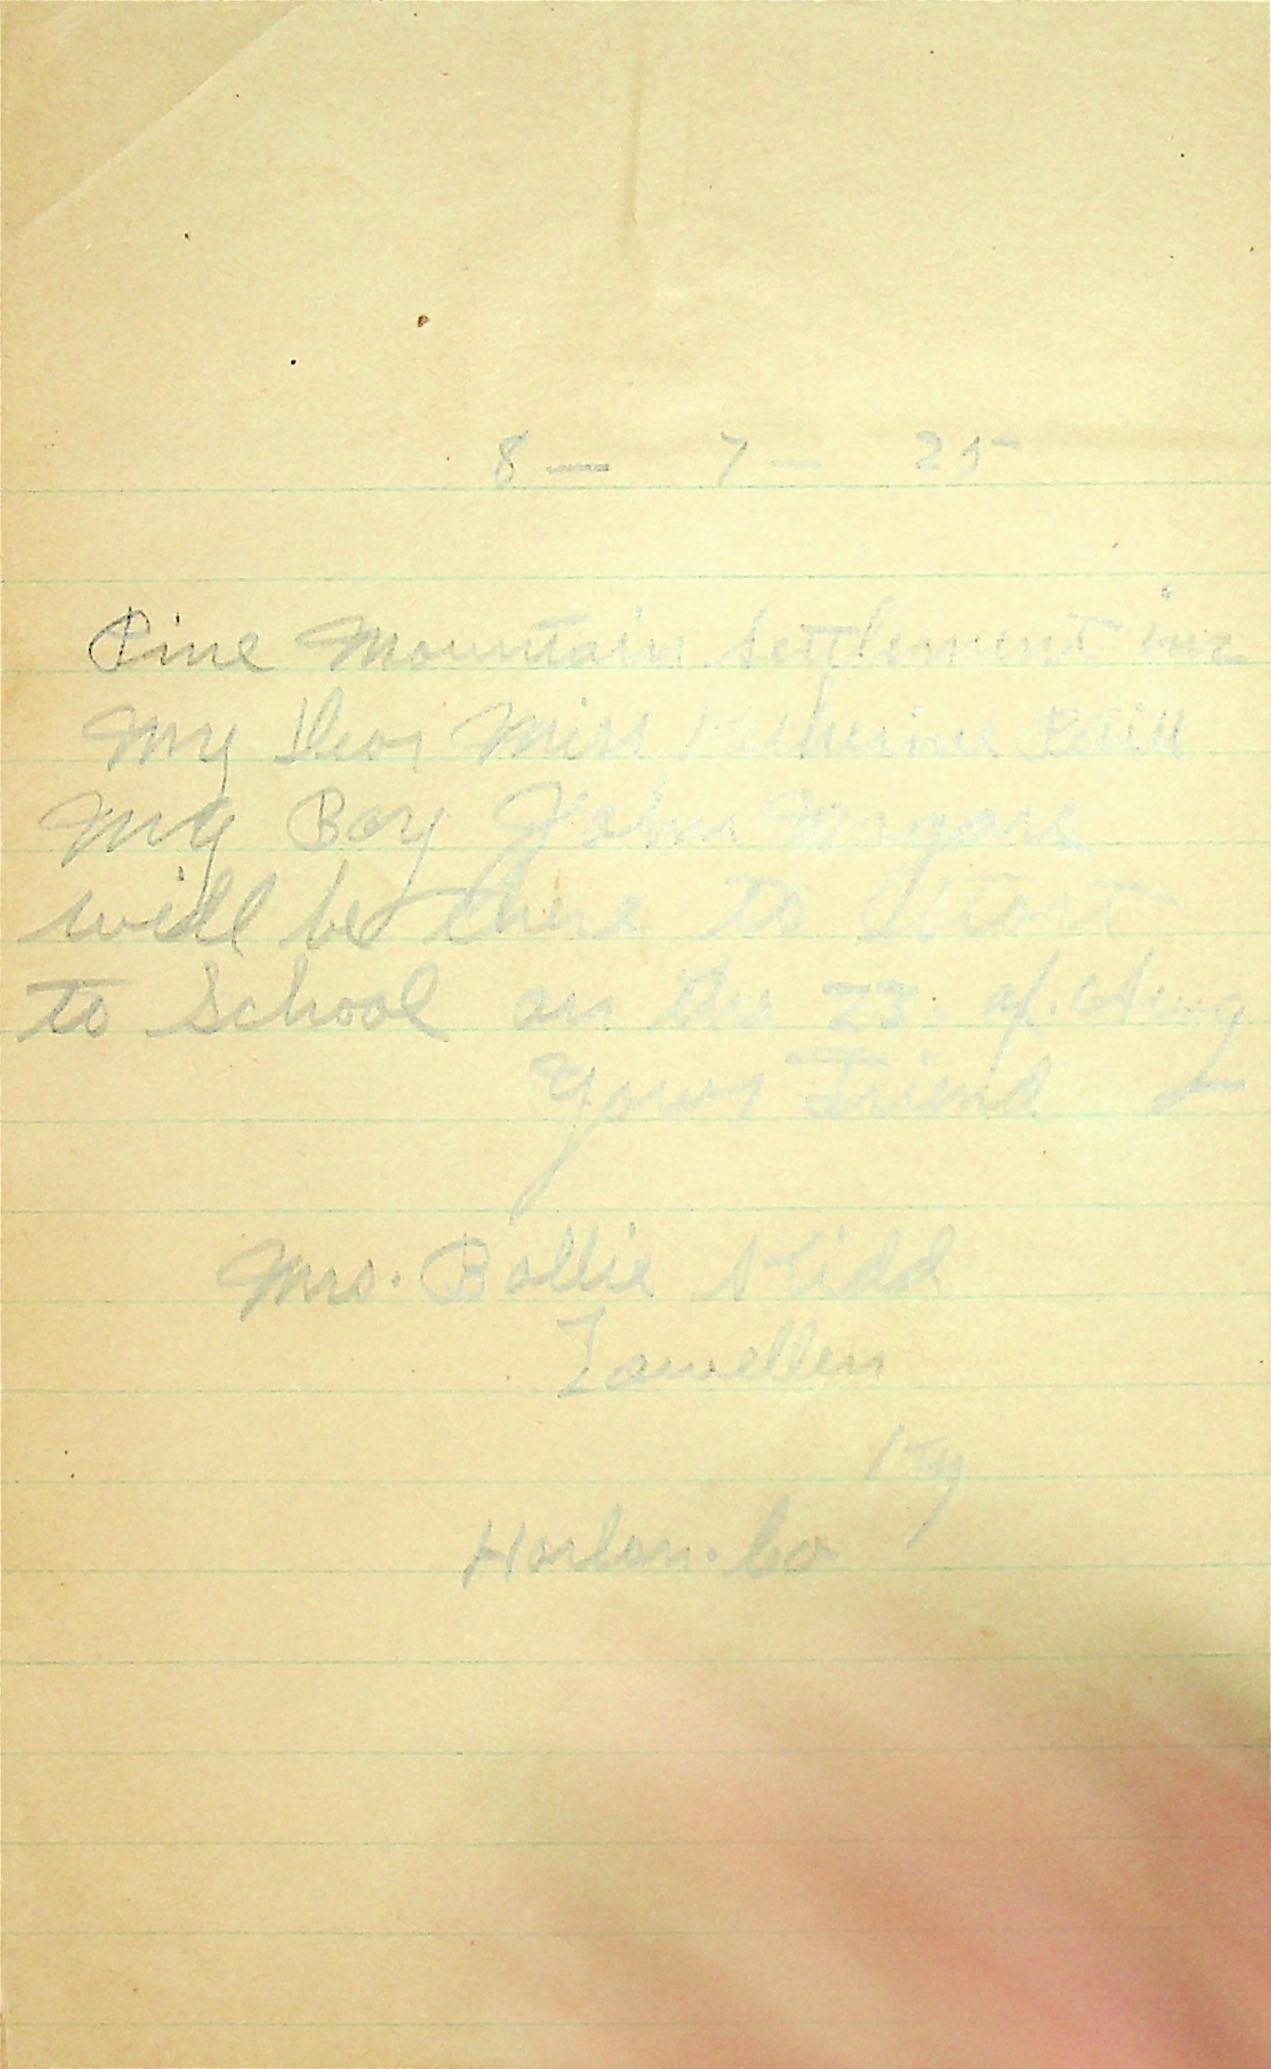 8 — 7 — 25
Pine Mountain Settlement inc
My Dear Miss Katherine Petitt
My Boy John
will be there to Start
to School on the 23. of Aug
Yours Friend
Mrs. Ballie Kidd
Lewellen
Ky
Harlan. Co